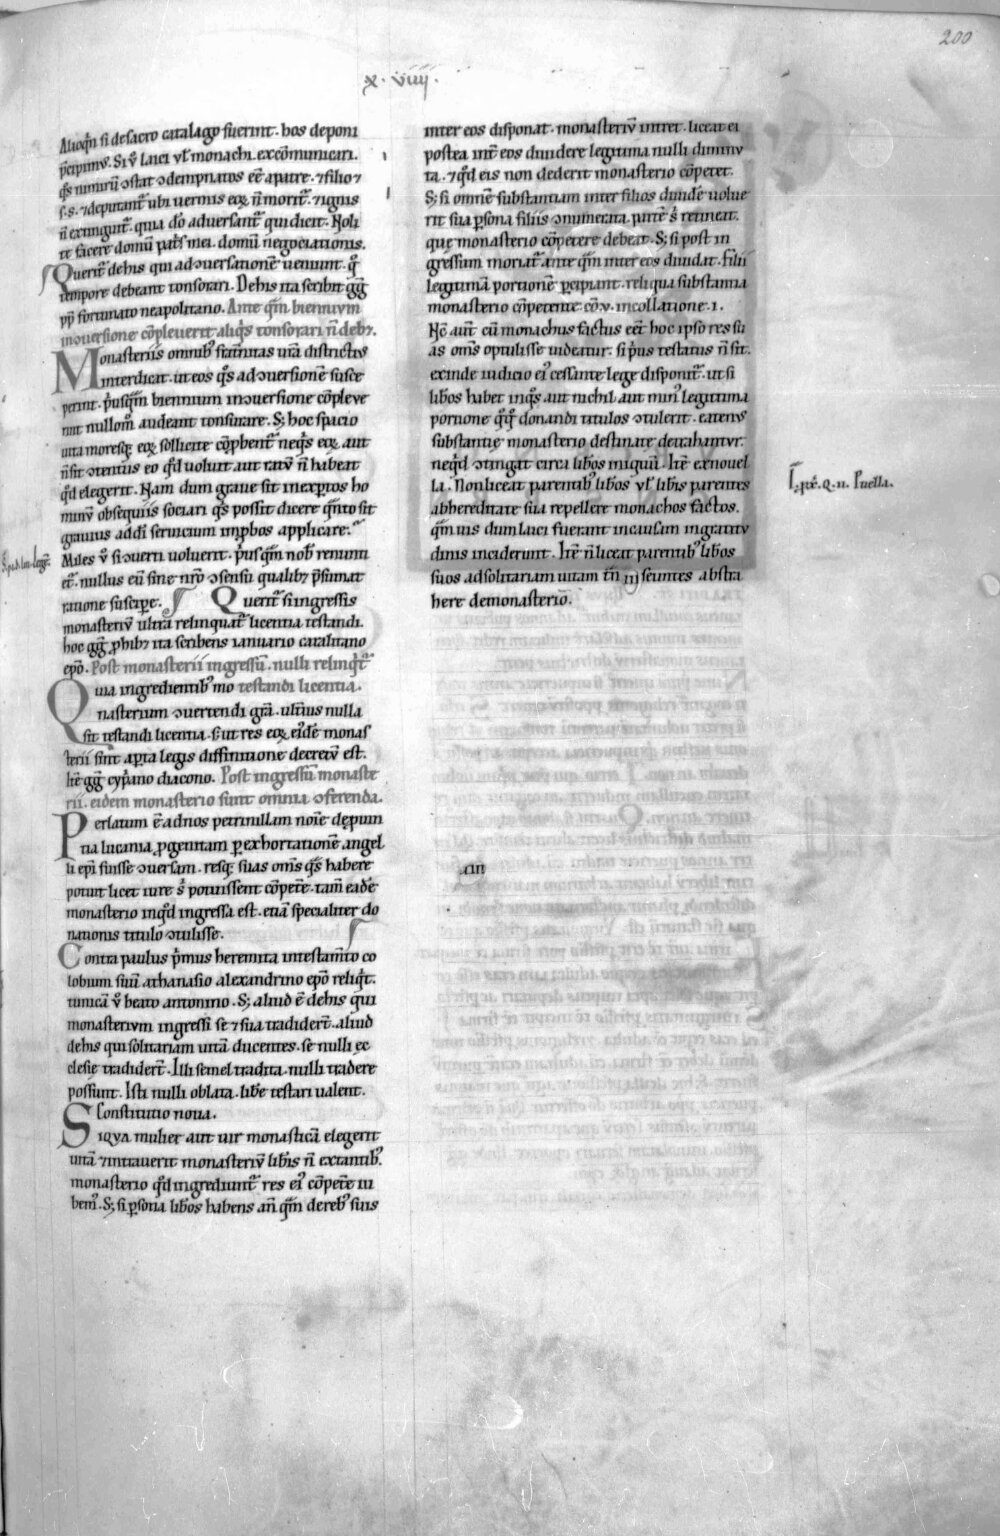 200
x. viiii.
Alioq̄n si de sacro catalago fuerint. hos deponi
p̄cipimus. Si v̄ laici vl̓ monachi. excōmunicari.
q̓s nimirū ↄstat ↄdempnatos eē a patre. ⁊ filio ⁊
s. s. ⁊ deputant̄ ubi uermis eoꝝ n̄ morit̄. ⁊ ignis
n̄ extinguit̄. quia dō aduersant̄ qui dicit. Noli
te facere domū pat̓s mei. domū negociationis.
Querit̄ de his qui ad ↄuersationē ueniunt. q̄
tempore debeant tonsorari. De his ita scribit gḡ
pp̄ fortunato neapolitano. Ante q̄m biennium
in ↄuersione cōpleuerit aliq̓s tonsorari n̄ deb&.
Monasteriis omnib; fr̄nitas ur̄a districtius
interdicat. ut eos q̓s ad ↄuersionē susce
perint. p̓usq̄m biennium in ↄuersione cōpleue
rint nullom̊ audeant tonsurare. S; hoc spacio
uita moresq; eoꝝ sollicite cōp̄bent̄ ne q̓s eoꝝ aut
n̄ sit ↄtentus eo q̊d uoluit aut ratū n̄ habeat
q̊d elegerit. Nam dum graue sit inexp̱tos ho
minū obsequiis sociari q̓s possit dicere q̄nto sit
grauius ad dī seruicium imp̱bos applicare.
Miles v̊ si ↄuerti uoluerit. p̓usq̄m nob̄ renunti
et̄. nullus eū sine nr̄o ↄsensu qualib; p̄sumat
ratione suscipe. Querit̄ si ingressis
monasteriū ultra relinquat̄ licentia testandi.
hoc gḡ ꝓhib; ita scribens ianuario caralitano
ep̄o. Post monasterii ingressū. nulli relinq̓t̄
testandi licentia.
Quia ingredientib; mo
nasterium ↄuertendi gr̄a. ulterius nulla
sit testandi licentia. s̄ ut res eoꝝ ei̓dē monas
terii sint aꝑta legis diffinitione decretū est.
Itē gḡ cyp̓ano diacono. Post ingressū monaste
rii. eidem monasterio sunt omnia ↄferenda.
Perlatum ē ad nos petronillam noīe de ꝓuin
tia lucania ꝓgenitam ꝑ exhortationē angel
li ep̄i fuisse ↄuersam. resq; suas om̄s q̓s habere
potuit licet iure s̄ potuissent cōpetere. tam̄ eadē
monasterio inq̊d ingressa est. etiā specialiter do
nationis titulo ↄtulisse.
Contra paulus p̓mus heremita in testam̄to co
lobium suū athanasio alexandrino ep̄o reliq̓t.
tunicā v̊ beato antonino. S; aliud ē de his qui
monasterium ingressi se ⁊ sua tradider̄t. aliud
de his qui solitariam uitā ducentes. se nulli ec
clesie tradider̄t. Illi semel tradita. nulli tradere
possunt. Isti nulli oblata. lib̄e testari ualent.
Constitutio noua.
SIQVA mulier aut uir monasticā elegerit
uitā ⁊ intrauerit monasteriū lib̄is n̄ extantib;.
monasterio q̊d ingrediunt̄ res ei̓ cōpetere iu
bem̓. S; si ꝑsona lib̄os habens an̄ q̄m de reb; suis
inter eos disponat. monasteriū intret. liceat ei
postea int̄ eos diuidere legitima nulli diminu
ta. ⁊ q̊d eis non dederit monasterio cōpetet.
S; si omnē substantiam inter filios diuidē uolue
rit sua ꝑsona filiis ↄnumerata partē s̓ retineat.
quę monasterio cōpetere debeat. S; si post in
gressum moriat̄ ante q̄m inter eos diuidat. filii
legitimā portionē ꝑcipiant. reliqua substantia
monasterio cōpetente. cōv. in collatione .i.
Nc̄ aut̄ cū monachus factus eēt hoc ipso res su
as om̄s optulisse uideatur. si p̓us testatus n̄ sit.
exinde iudicio ei̓ cessante lege disponit̄. ut si
lib̄os habet in q̓s aut nichil aut min̓ legitima
portione q̊q̊ donandi titulos ↄtulerit. eatenus
substantię monasterio destinate detrahantur.
neq̊d ↄtingat circa lib̄os iniquū. Itē ex nouel
la. Non liceat parentib; lib̄os vl̓ lib̄is parentes
ab hereditate sua repellere monachos factos.
q̄muis dum laici fuerant in causam ingratitu
dinis inciderunt. Itē n̄ liceat parentib; lib̄os
suos ad solitariam uitam tn̄ iij seruntes abstra
here de monasterio.
J. p̄x. Q. ii. Puella.